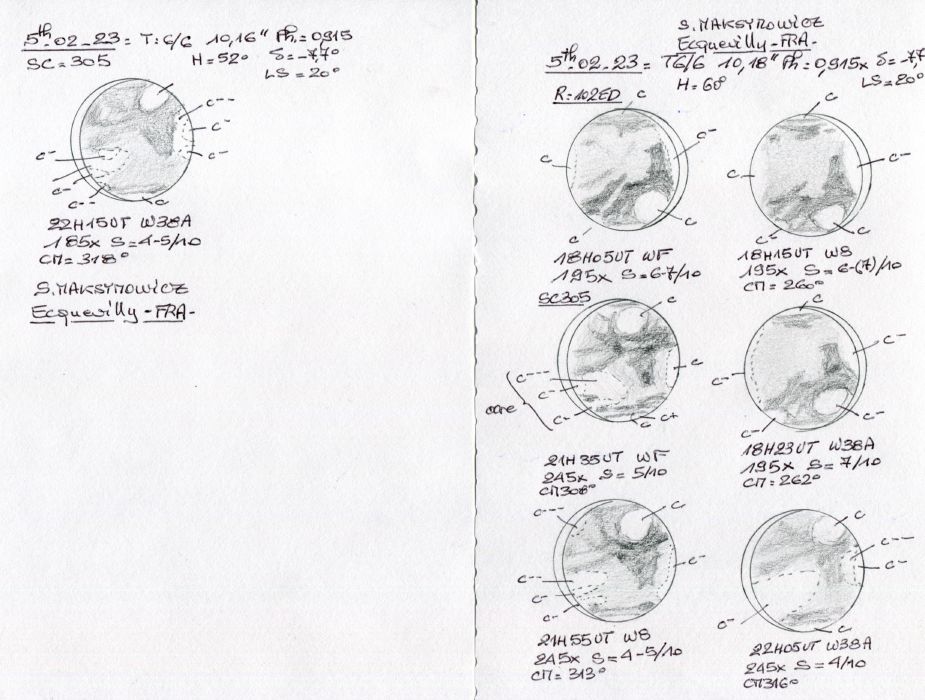 5th.02_23= T:6/6 10,16" Ph:=0,915
SC=305 H=52° δ=-7,7°
LS=20°
c--
c-
c-
c-
c-
c--
c
22H15UT W38A
185x S=4-5/10
CM=318°
S.MAKSYMOWICZ
Ecquevilly-FRA-
S.MAKSYMOWICZ
Ecquevilly-FRA-
5th.02-23= T6/6 10,18" Ph=0,915x δ=-7,7°
R=102ED H=60° LS=20°
c
c-
c
c
c
c
c-
c
c-
c-
18H05UT WF
195x S=6-7/10
18H15UT W8
195x S=6-(7)/10
CM=260°
SC305
c
c
c---
c--
c-
c c+
c
c-
c--
c-
c-
21H35UT WF
245x S=5/10
CM308°
18H23UT W38A
195x S=7/10
CM=262°
c---
c
c-
c--
c-
c-
c
c---
c-
c-
c
21H55UT W8
245x S=4-5/10
CM=313°
22H05UT W38A
245x S=4/10
CM316°